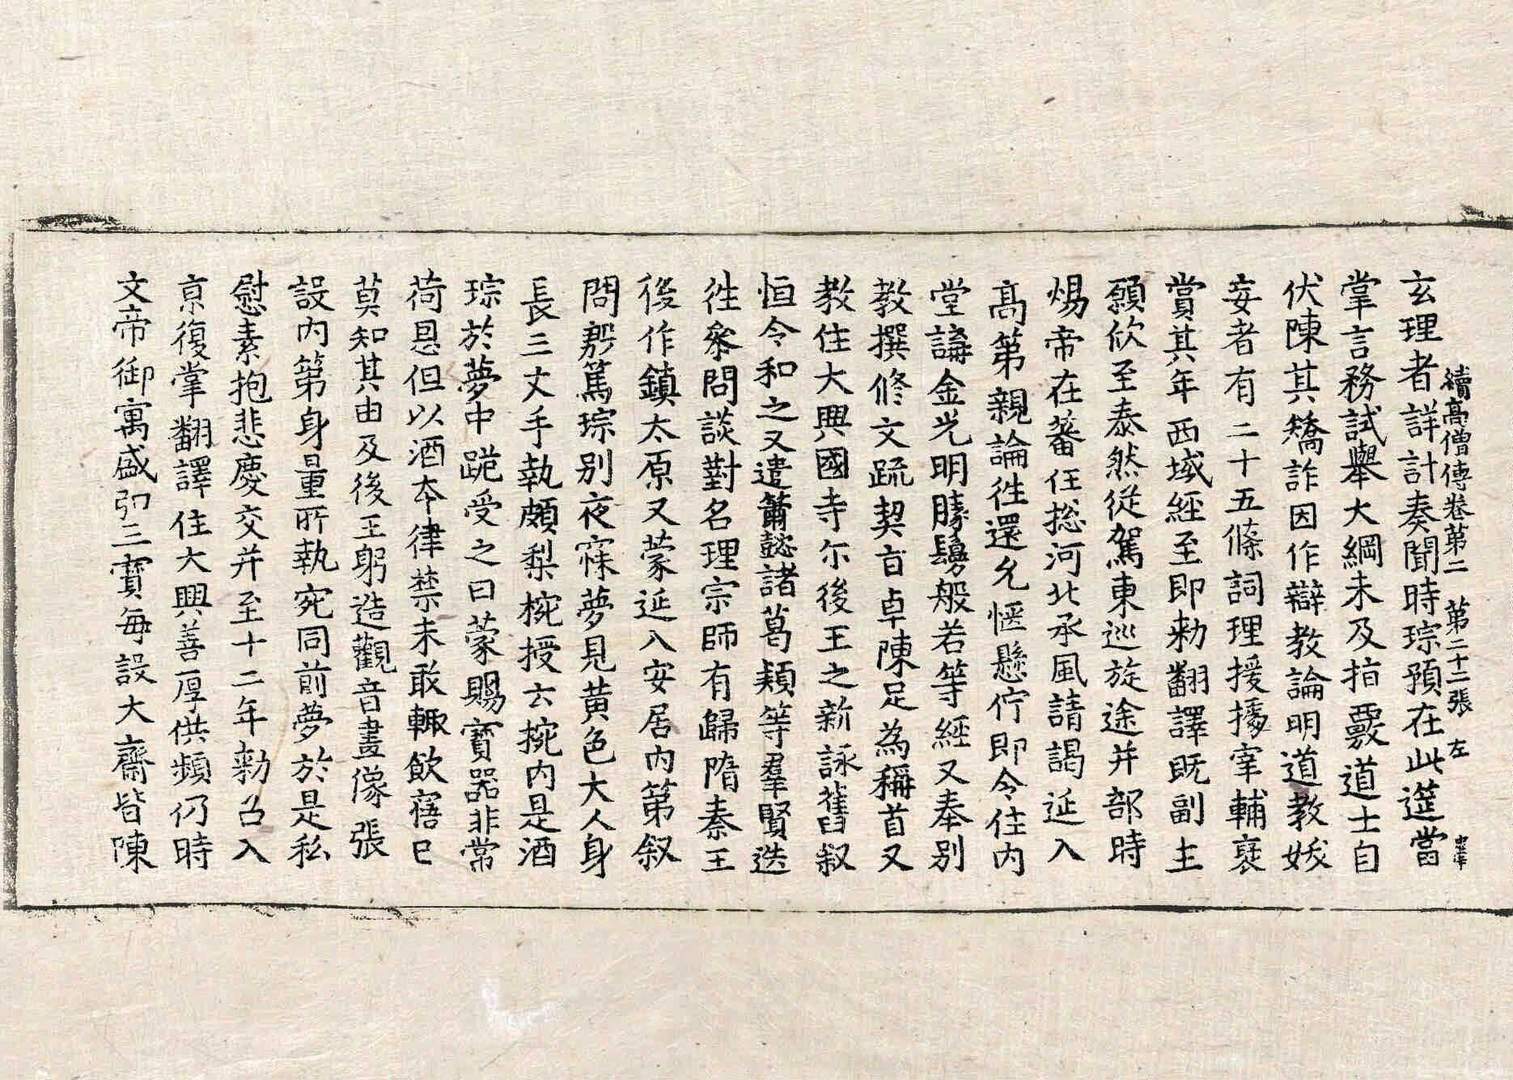 續高僧傳卷第二　第二十二張　左
玄理者詳計奏聞時琮預在此筵當
掌言務試舉大綱未及指覈道士自
伏陳其矯詐因作辯教論明道教妖
妄者有二十五條詞理援據宰輔褒
賞其年西域經至即勅翻譯既副生
願欣至泰然從駕東巡旋途并部時
煬帝在蕃任揔河北承風請謁延入
高第親論往還允愜懸佇即令住內
堂講金光明勝鬘般若等經又奉別
教撰修文疏契旨卓陳足為稱首又
教住大興國寺尒後王之新詠舊叙
恒令和之又遣蕭慤諸葛穎等羣賢迭
往叅問談對名理宗師有歸隋秦王
後作鎮太原又蒙延入安居內第叙
問慇篤琮別夜寐夢見黃色大人身
長三丈手執頗梨椀授云捥內是酒
琮於夢中跪受之曰蒙賜寶器非常
荷恩但以酒夲律禁未敢輙飲寤已
莫知其由及後王躬造觀音畫像張
設內第身量所執宛同前夢於是私
慰素抱悲慶交并至十二年勅召入
亰復掌翻譯住大興善厚供頻仍時
文帝御寓盛弘三寶每設大齋皆陳